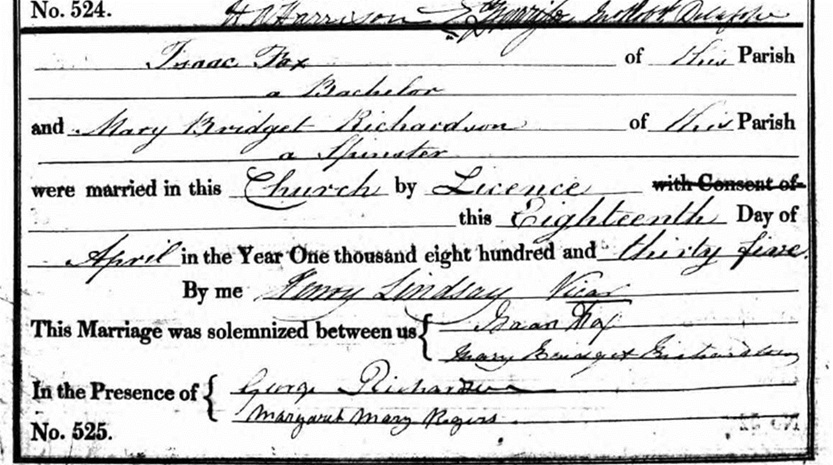 No. 524. H A Harrison
Isaac Fox of this Parish
a Bachelor
and Mary Bridget Richardson of this Parish
a Spinster
were married in this Church by Licence with Consent of
this Eighteenth Day of
April in the Year One thousand eight hundred and thirty five
By me Henry Lindsay Vicar
This Marriage was solemnized between us { Isaac Fox
Mary Bridget Richardson
In the Presence of { George Richardson
Margaret Mary Rogers
No. 525.